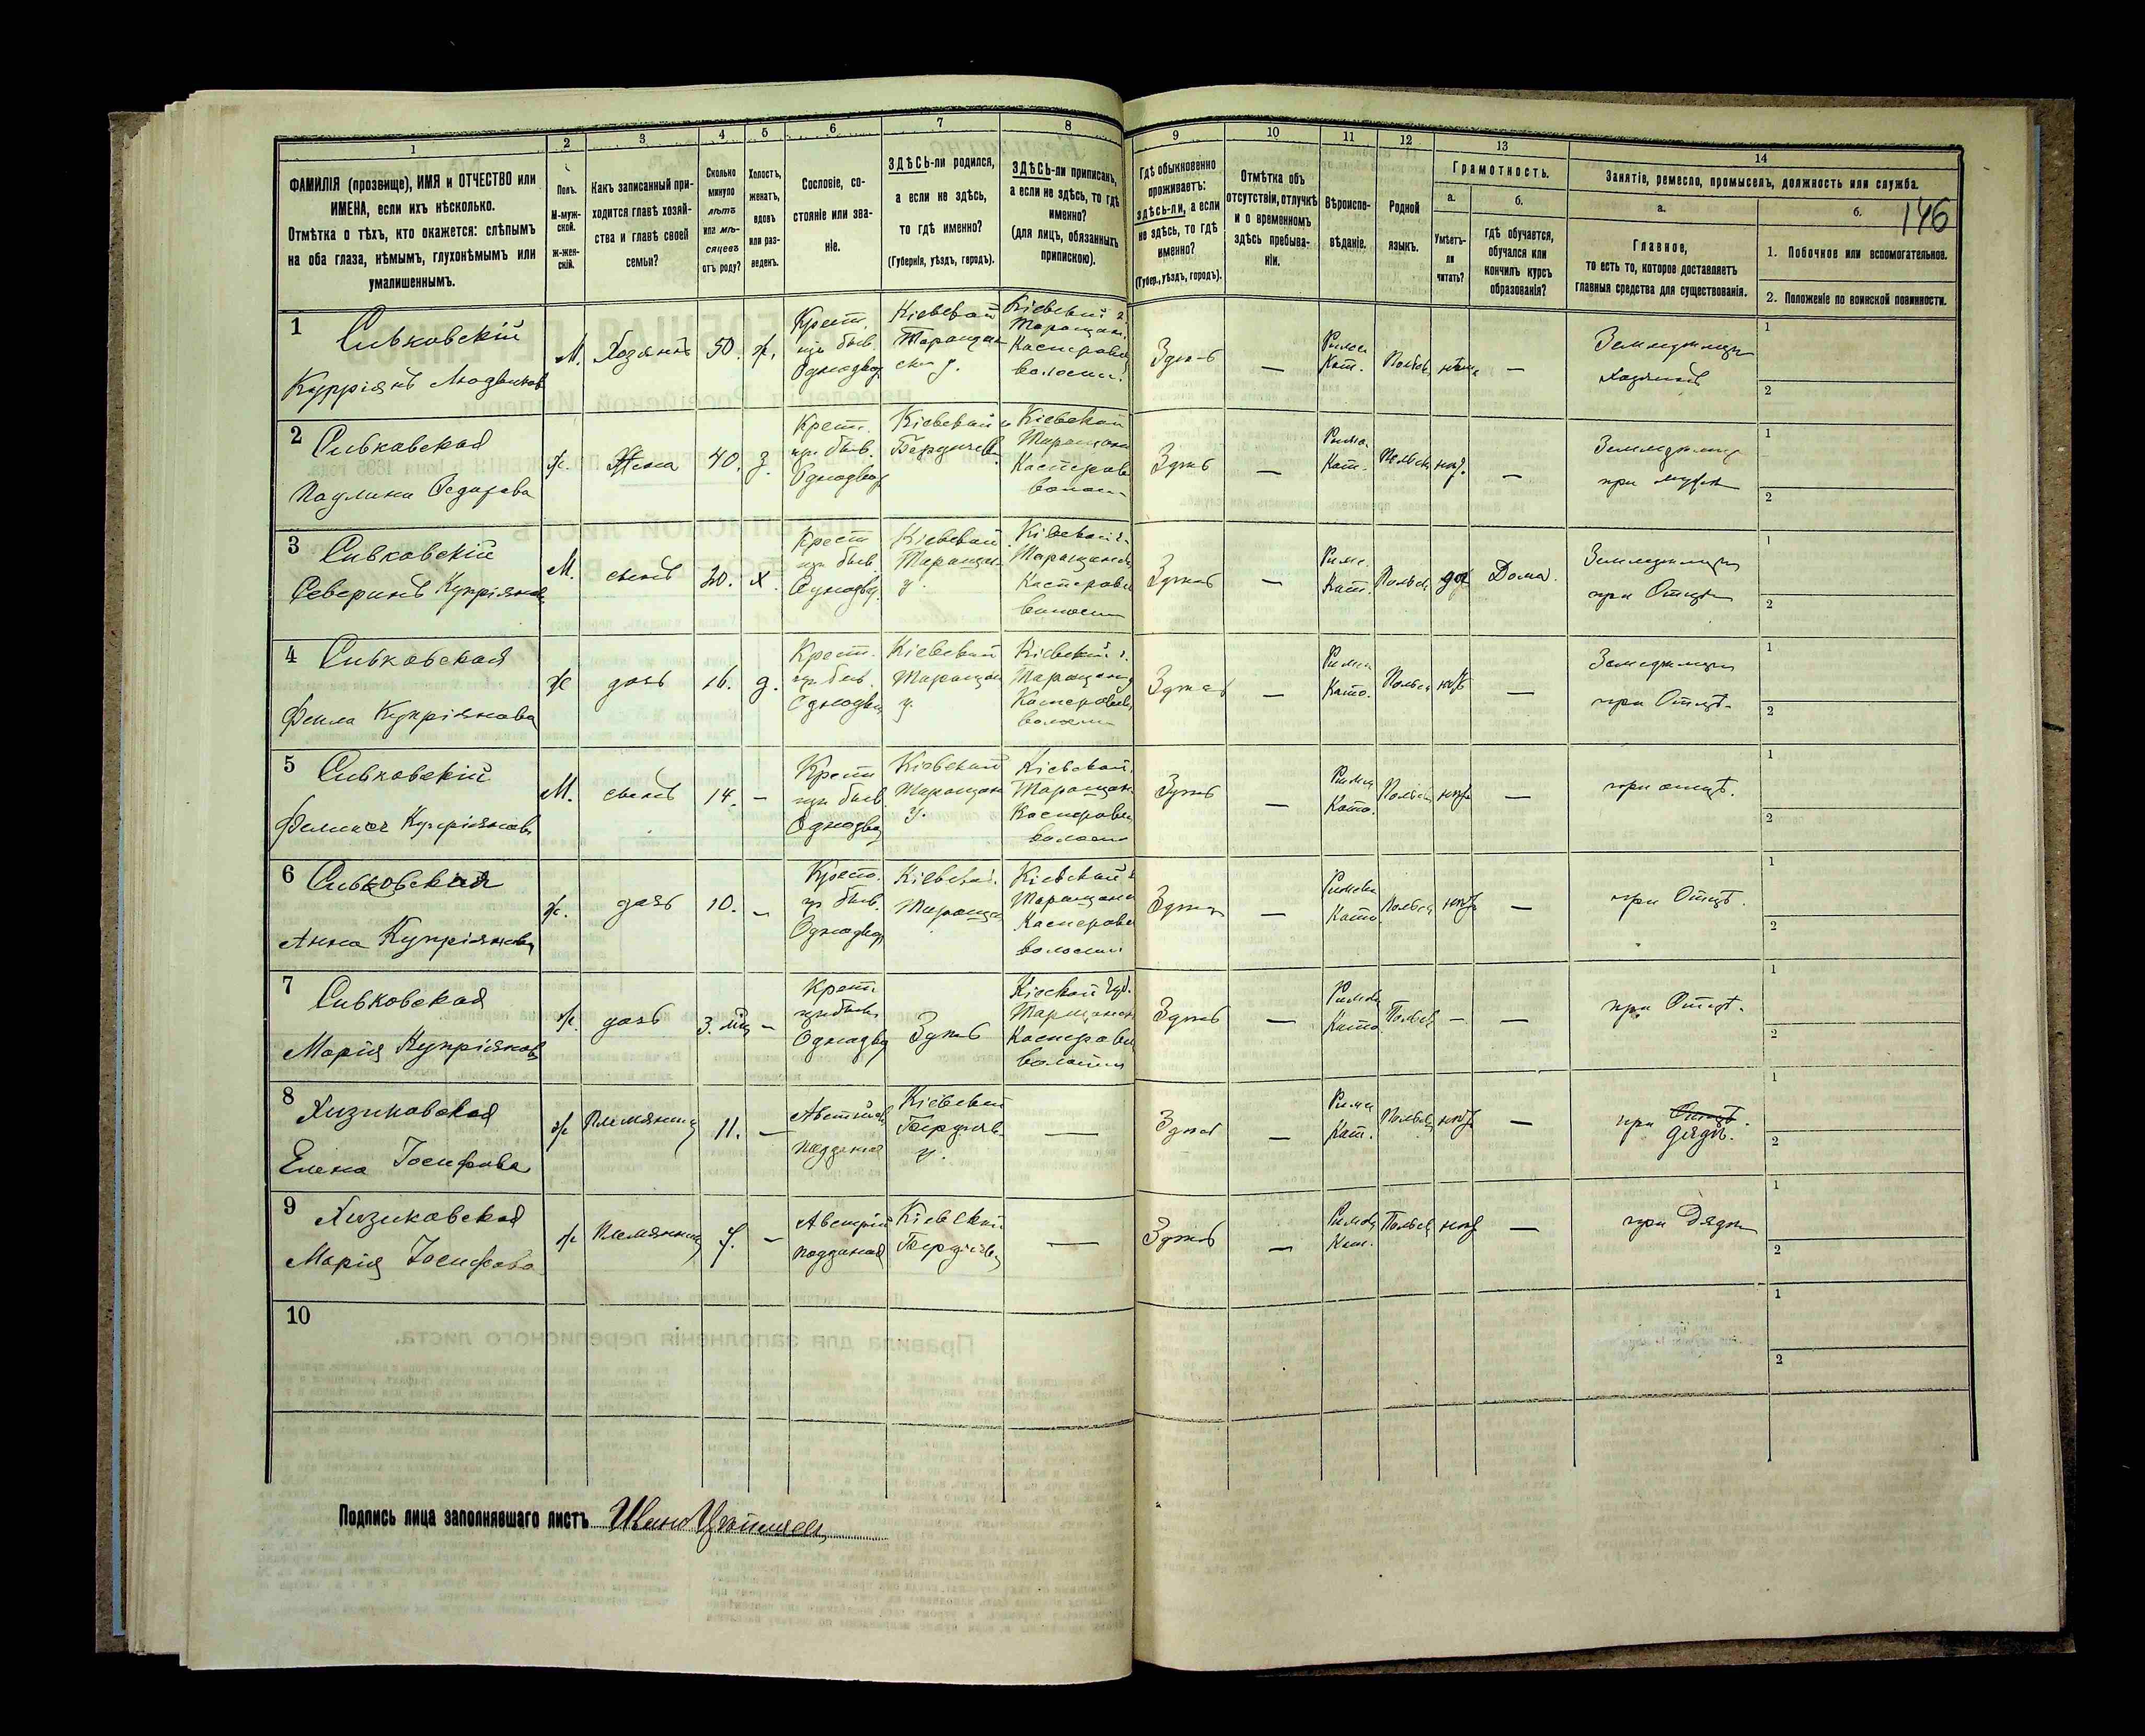 1 2 3 4 5 6 7 8 9 10 11 12 13 14
ФАМИЛІЯ (прозвище), ИМЯ и ОТЧЕСТВО или
ИМЕНА, если ихъ нѣсколько.
Отмѣтка о тѣхъ, кто окажется: слѣпымъ
на оба глаза, нѣмымъ, глухонѣмымъ или
умалишеннымъ.
Полъ.
М-муж-
ской.
ж-жен-
скій.
Какъ записанный при-
ходится главѣ хозяй-
ства и главѣ своей
семьи?
Сколько
минуло
лѣтъ
или мѣ-
сяцевъ
отъ роду?
Холостъ,
женатъ,
вдовъ
или раз-
веденъ.
Сословіе, со-
стояніе или зва-
ніе.
ЗДѢСЬ-ли родился,
а если не здѣсь,
то гдѣ именно?
(Губернія, уѣздъ, городъ).
ЗДѢСЬ-ли приписанъ,
а если не здѣсь, то гдѣ
именно?
(для лицъ, обязанныхъ
припискою).
Гдѣ обыкновенно
проживаетъ:
здѣсь-ли, а если
не здѣсь, то гдѣ
именно?
(Губер., уѣздъ, городъ).
Отмѣтка объ
отсутствіи, отлучкѣ
и о временномъ
здѣсь пребыва-
ніи.
Вѣроиспо-
вѣданіе.
Родной
языкъ.
Грамотность.
а.
Умѣетъ-
ли
читать?
б.
гдѣ обучается,
обучался или
кончилъ курсъ
образованія?
Занятіе, ремесло, промыселъ, должность или служба.
а.
Главное,
то есть то, которое доставляетъ
главныя средства для существованія.
б.
146
1. Побочное или вспомогательное.
2. Положеніе по воинской повинности.
1 Сивковскій
Купріянъ Людвиков
М. Хозяинъ 50. ж.
Крест.
из быв.
Однодвор
Кіевской
Таращан
ск у.
Кіевской г.
Таращан.
Касперовск
волости.
Здѣсь —
Римск
Кат.
Польск нѣтъ —
Хозяинъ
1
2
2 Сивковская
Паулина
ж. Жена 40. з.
Крест.
из быв.
Однодвор
Кіевской
Бердичев.
Кіевской
Таращан
Касперов
волост
Здѣсь —
Римск.
Кат.
Польск нѣт. —
при мужѣ
1
2
3 Сивковскій
Северинъ Купріянов
М. сынъ 20. х.
Крест
из быв.
Однодвор.
Кіевской
Таращан
у.
Кіевской г.
Таращанск
Касперовск
волости
Здѣсь —
Римс.
Кат. Польск да Дома.
при Отцѣ
1
2
4 Сивковская
Купріянова
ж дочь 16. д.
Крест.
из быв.
Однодвор
Кіевской
Таращан
у.
Кіевской г.
Таращанск
Касперовск
волости
Здѣсь —
Римск
Като. Польск нѣтъ —
при Отцѣ.
1
2
5 Сивковскій
Феликсъ Купріяновъ
М. сынъ 14. —
Крест
из быв.
Однодвор
Кіевской
Таращан
у.
Кіевской.
Таращан
Касперовск
волости
Здѣсь —
Римск
Като. Польск нѣтъ —
при отцѣ.
1
2
6 Сивковская
Анна Купріянова
ж. дочь 10. —
Крест.
из быв.
Однодвор
Кіевской.
Таращан
Кіевской г
Таращанск
Касперовск
волости
Здѣсь —
Римска
Като. Польск нѣтъ —
при Отцѣ.
1
2
7 Сивковская
Марія Купріянов
ж. дочь 3. мѣс —
Крест.
из быв.
Однодвор
Здѣсь
Кіевской Губ.
Таращанск
Касперовск
волости
Здѣсь —
Римска
Като. Польск — —
при Отцѣ.
1
2
8 Хизиковская
Елена Іосифова
ж Племянниц 11. —
Австрійск
подданая
Кіевской
Бердичев
у.
—
Здѣсь —
Римск
Кат. Польск нѣтъ —
при Отцѣ.
дядѣ.
1
2
9 Хизиковская
Марія Іосифова
ж Племянниц 7. —
Австрій
подданая
Кіевской
Бердичев
—
Здѣсь —
Римска
Кат. Польск нѣт —
при Дядѣ
1
2
10
1
2
Подпись лица заполнявшаго листъ Иванъ